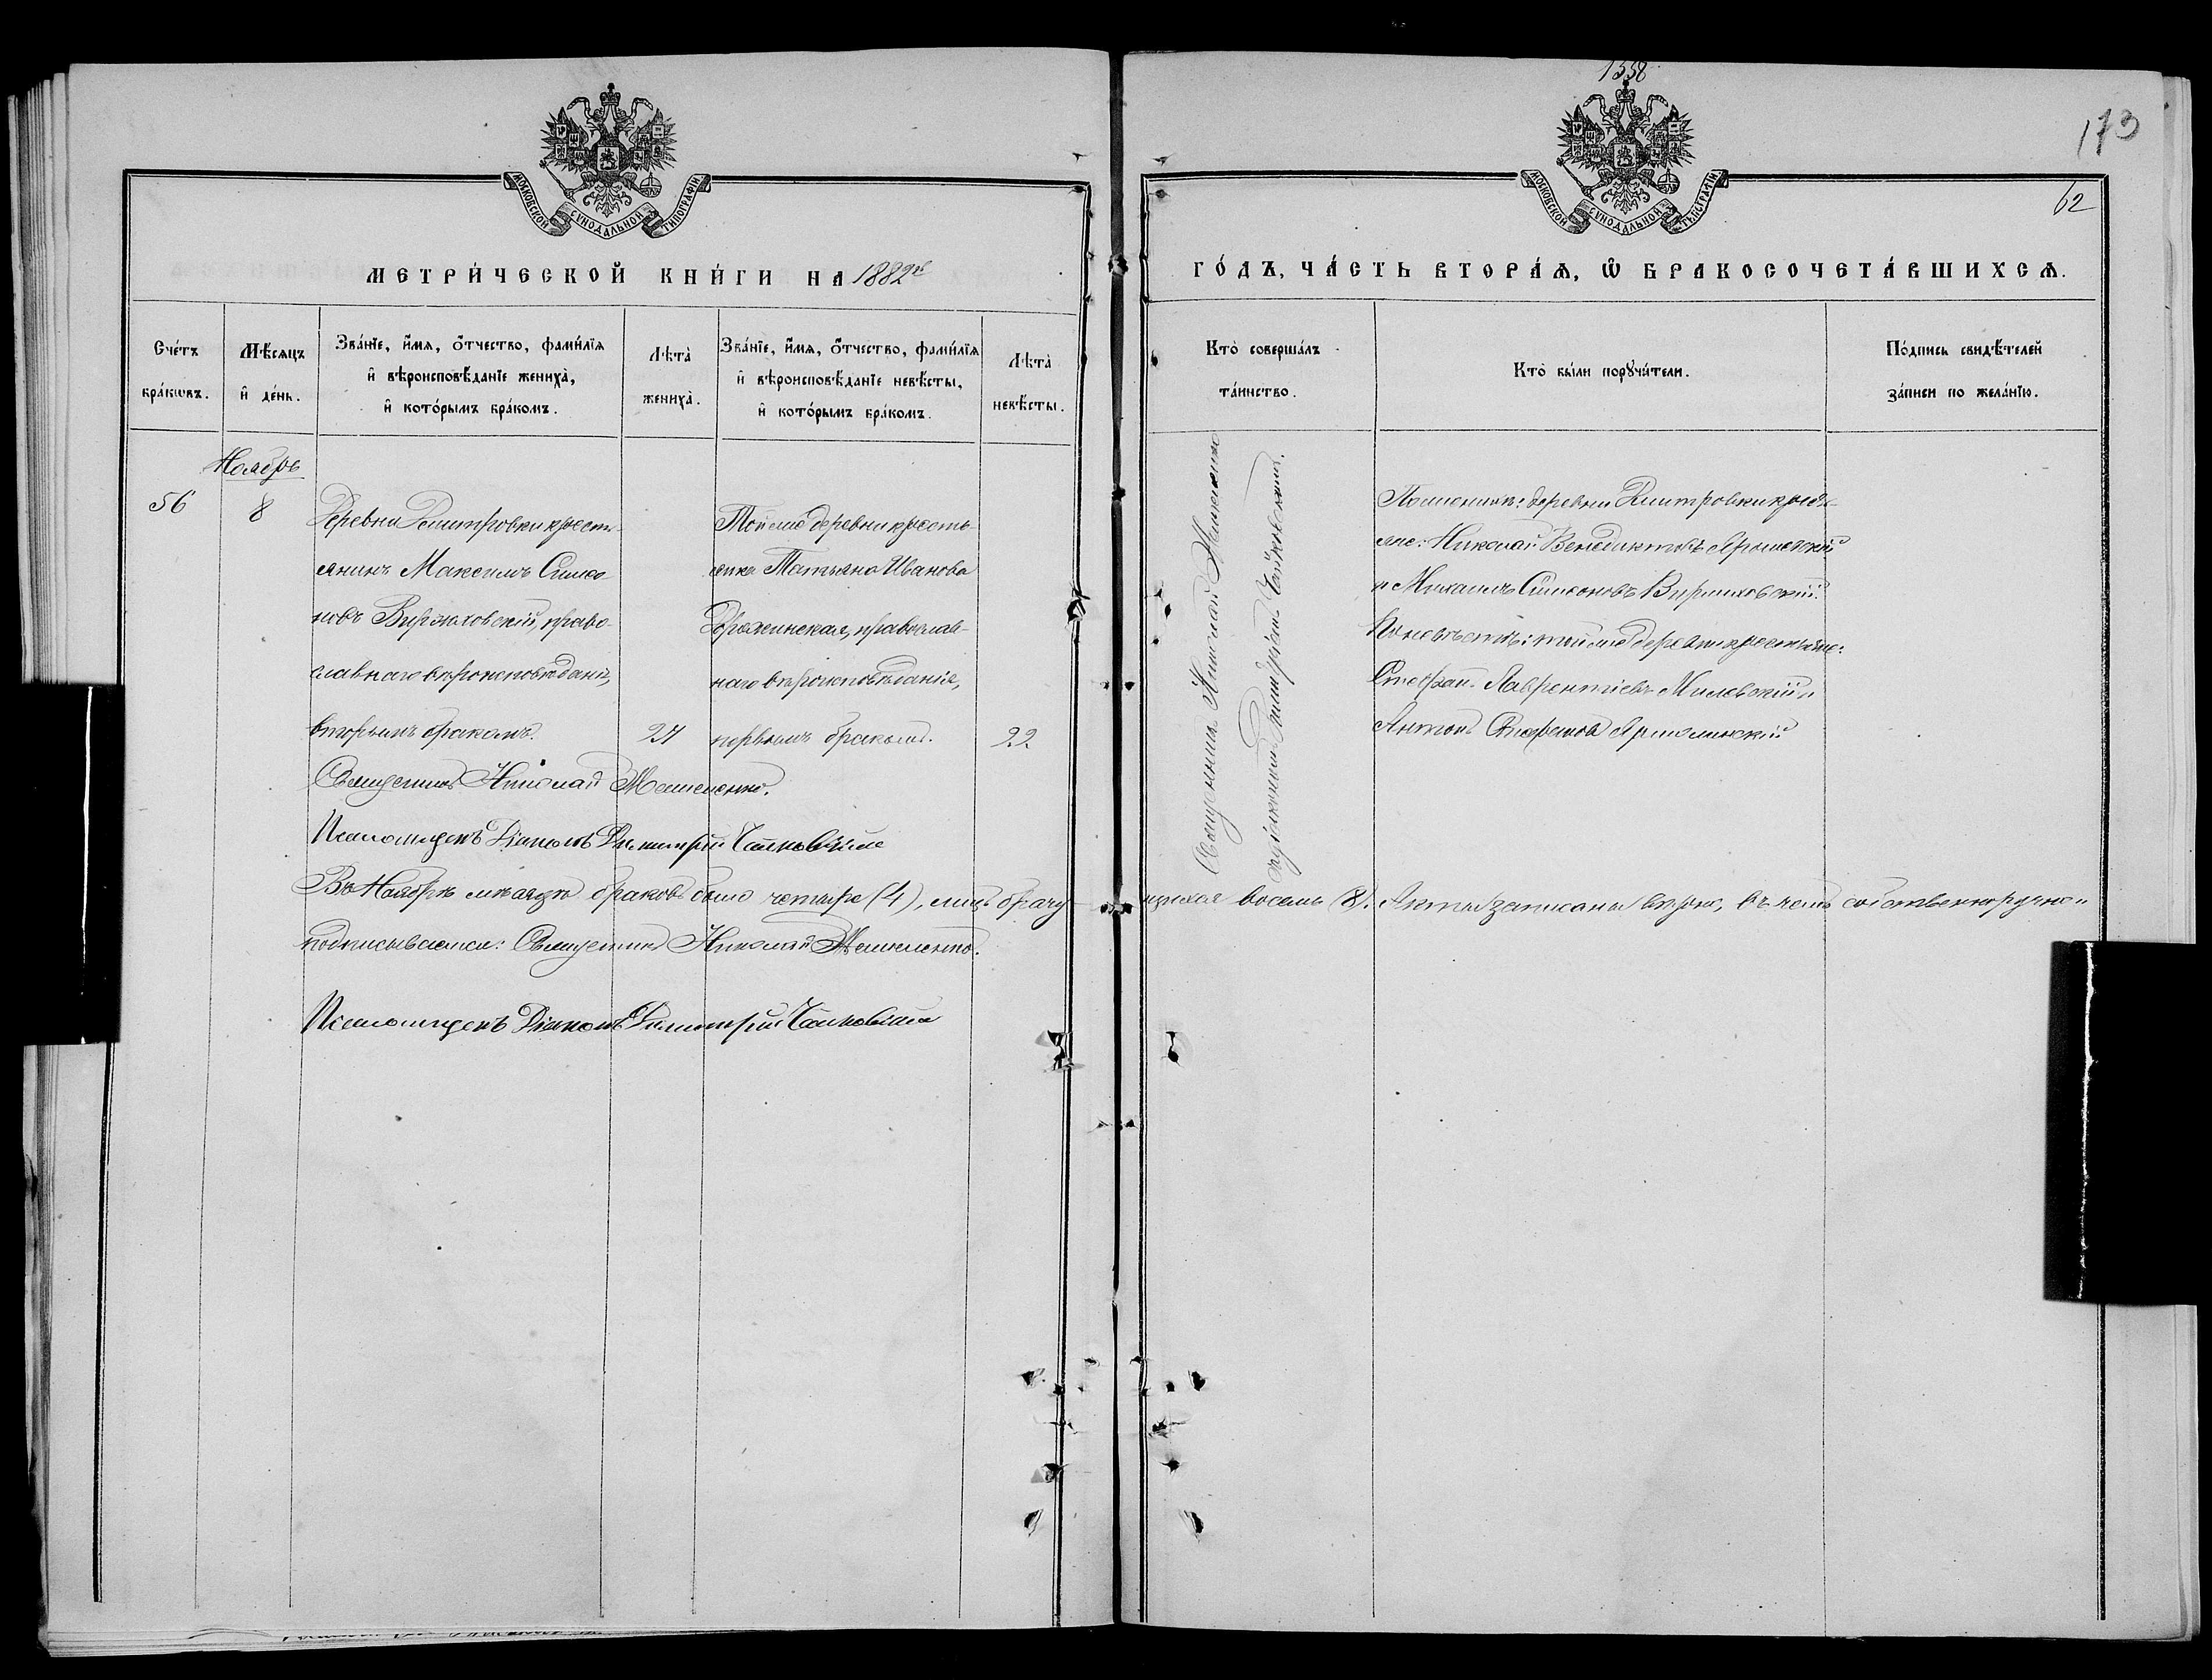 1558
173
62
МОСКОВСКОЙ СѴНОДАЛЬНОЙ ТИПОГРАФІИ
МОСКОВСКОЙ СѴНОДАЛЬНОЙ ТИПОГРАФІИ
МЕТРИ́ЧЕСКОЙ КНИ́ГИ НА 1882й
ГО́ДЪ, ЧА́СТЬ ВТОРА́Ѧ, Ѡ҆ БРАКОСОЧЕТА́ВШИХСѦ.
Сче́тъ бра́кѡвъ.
Мѣ́сѧцъ и҆ де́нь.
Зва́нїе, и҆́мѧ, о҆́тчество, фами́лїѧ
и҆ вѣроисповѣ́данїе жениха̀,
и҆ кото́рымъ бра́комъ.
Лѣта̀ жениха̀.
Зва́нїе, и҆́мѧ, о҆́тчество, фами́лїѧ
и҆ вѣроисповѣ́данїе невѣ́сты,
и҆ кото́рымъ бра́комъ.
Лѣта̀ невѣ́сты.
Кто̀ соверша́лъ та́инство.
Кто̀ бы́ли порꙋчи́тели.
По́дпись свидѣ́телей
за́писи по жела́нїю.
Ноябрь
56
8
Деревни Дмитровки кресть-
янинъ Максимъ Симео-
новъ Виржиховскій, право-
славнаго вѣроисповѣданія,
вторымъ бракомъ.
24
Той же деревни кресть
янка Татьяна Иванова
Дрожинская, православ-
наго вѣроисповѣданія,
первымъ бракомъ.
22
Священникъ Николай
Діакономъ Димитріемъ
По женихѣ: деревни Дмитровки крестья-
яне: Николай Венедиктовъ
и Михаилъ Симеоновъ Виржиховскій.
По невѣстѣ: той же деревни крестьяне:
Стефанъ Лаврентіевъ Милевскій и
Антонъ Стефановъ
Священникъ Николай
Псаломщикъ Діаконъ Димитрій
Въ Ноябрѣ мѣсяцѣ браковъ было четыре (4), лицъ брачу
щихся восемь (8). Акты записаны вѣрно, въ чемъ собственноручно и
подписываемся: Священникъ Николай
Псаломщикъ Діаконъ Димитрій